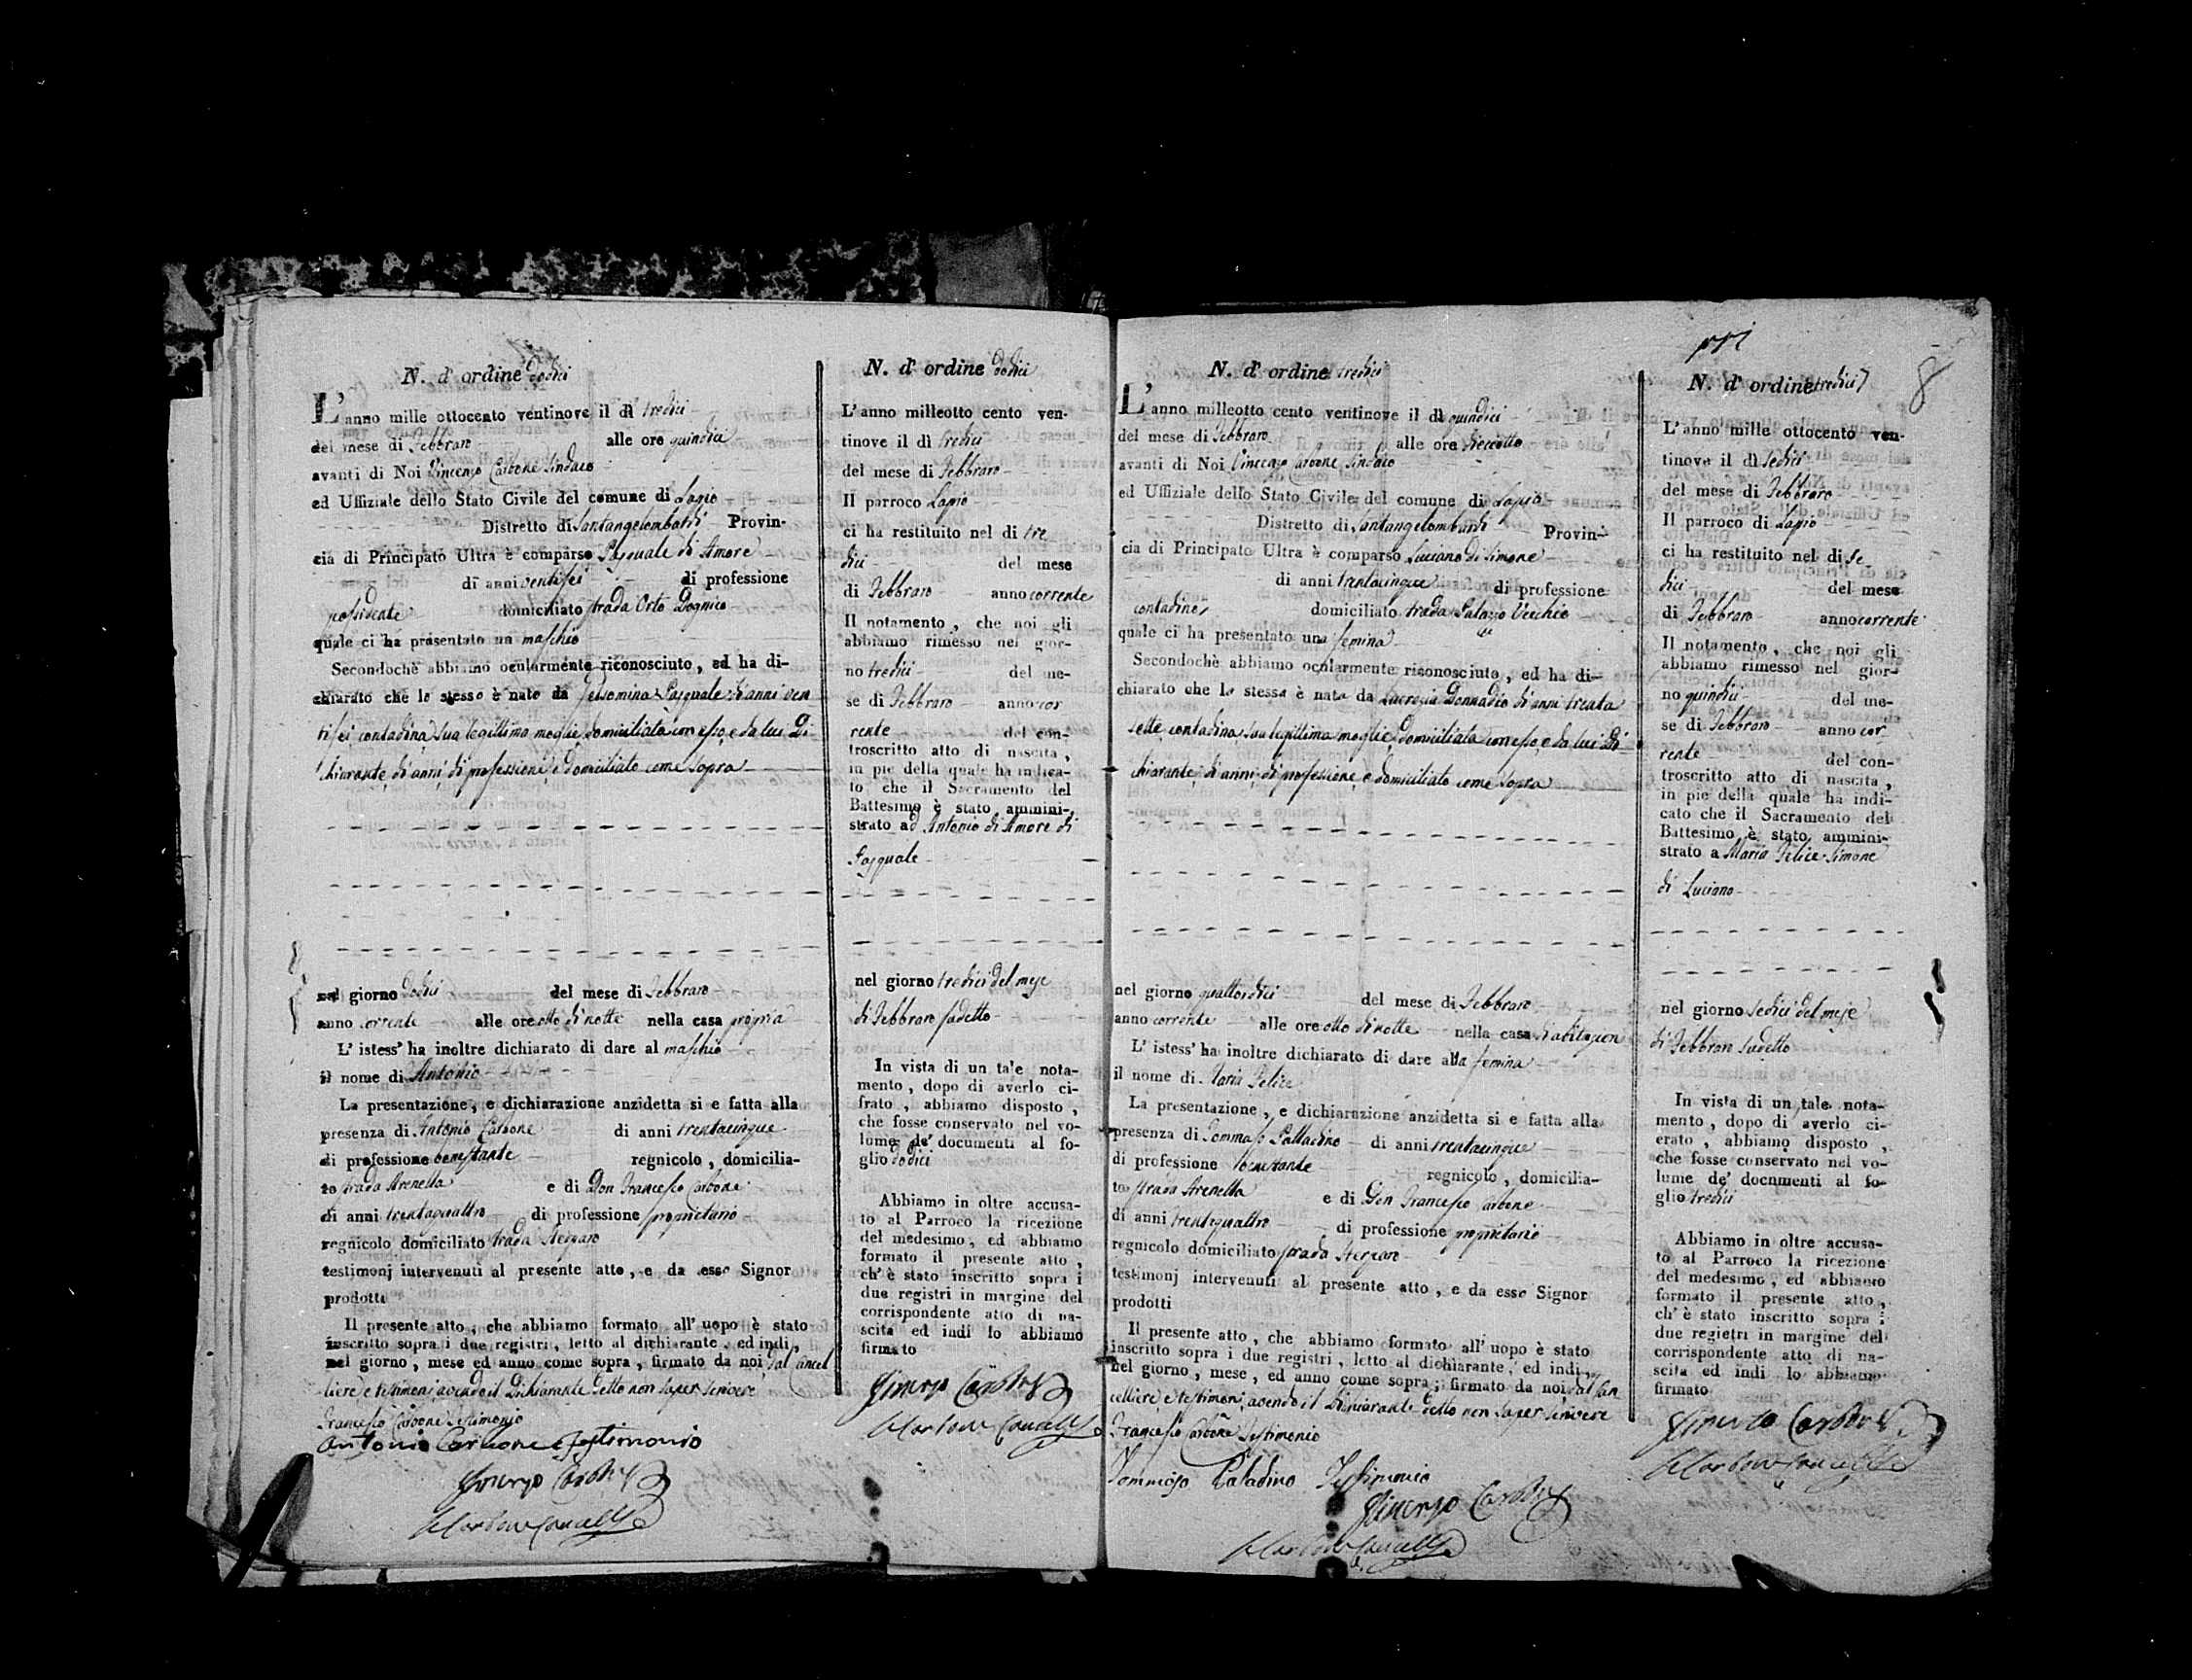 N. d' ordine dodici
L'anno mille ottocento ventinove il dì tredici
del mese di Febbraro alle ore quindici
avanti di Noi Vincenzo Carbone Sindaco
ed Uffiziale dello Stato Civile del comune di Lapio
Distretto di Santangelombardi Provin-
cia di Principato Ultra è comparso Pasquale di Amore
di anni ventisei di professione
possidente domiciliato strada Orto Dognico
quale ci ha presentato un maschio
Secondochè abbiamo ocularmente riconosciuto, ed ha di-
chiarato che lo stesso è nato da Felsomina Pasquale di anni ven
tisei contadina, sua legittima moglie, domiciliata con esso, e da lui Di
chiarante, di anni, di professione e domiciliato come sopra
nel giorno dodici del mese di Febbraro
anno corrente alle ore otto di notte nella casa propria
L' istess' ha inoltre dichiarato di dare al maschio
il nome di Antonio
La presentazione, e dichiarazione anzidetta si e fatta alla
presenza di Antonio Carbone di anni trentacinque
di professione benestante regnicolo, domicilia-
to strada Arenella e di Don Francesco Carbone
di anni trentaquattro di professione proprietario
regnicolo domiciliato strada
testimonj intervenuti al presente atto, e da esso Signor
prodotti
Il presente atto, che abbiamo formato all' uopo è stato
inscritto sopra i due registri, letto al dichiarante, ed indi,
nel giorno, mese ed anno come sopra, firmato da noi, dal Cancel
liere e testimoni avendo il Dichiarante detto non saper scrivere
Francesco Carbone Testimonio
Antonio Carbone Testimonio
Vincenzo Carbone
N. d' ordine dodici
L'anno milleotto cento ven-
tinove il dì tredici
del mese di Febbraro
Il parroco Lapio
ci ha restituito nel di tre
dici del mese
di Febbraro anno corrente
Il notamento, che noi gli
abbiamo rimesso nel gior-
no tredici del me-
se di Febbraro anno cor
rente del con-
troscritto atto di nascita,
in pie della quale ha indica-
to che il Sacramento del
Battesimo è stato ammini-
strato ad Antonio di Amore di
Pasquale
nel giorno tredici del mese
di Febbraro sudetto
In vista di un tale nota-
mento, dopo di averlo ci-
frato, abbiamo disposto,
che fosse conservato nel vo-
lume de' documenti al fo-
glio dodici
Abbiamo in oltre accusa-
to al Parroco la ricezione
del medesimo, ed abbiamo
formato il presente atto,
ch' è stato inscritto sopra i
due registri in margine del
corrispondente atto di na-
scita ed indi lo abbiamo
firmato
Vincenzo Carbone
N. d' ordine tredici
L'anno milleotto cento ventinove il dì quindici
del mese di Febbraro alle ore dieciotto
avanti di Noi Vincenzo Carbone Sindaco
ed Uffiziale dello Stato Civile del comune di Lapio
Distretto di Santangelombardi Provin-
cia di Principato Ultra è comparso Luciano di Simone
di anni trentacinque di professione
contadino domiciliato strada Palazzo Vecchio
quale ci ha presentato una femina
Secondochè abbiamo ocularmente riconosciuto, ed ha di-
chiarato che la stessa è nata da Lucrezia Donnadio di anni trenta
sette contadina, sua legittima moglie, domiciliata con esso, e da lui Di
chiarante, di anni, di professione, e domiciliato come sopra
nel giorno quattordici del mese di Febbraro
anno corrente alle ore otto di notte nella casa d'abitazion
L' istess' ha inoltre dichiarato di dare alla femina
il nome di Maria Felice
La presentazione, e dichiarazione anzidetta si e fatta alla
presenza di Tommaso Palladino di anni trentacinque
di professione benestante regnicolo, domicilia-
to strada Arenella e di Don Francesco Carbone
di anni trentaquattro di professione proprietario
regnicolo domiciliato strada
testimonj intervenuti al presente atto, e da esso Signor
prodotti
Il presente atto, che abbiamo formato all' uopo è stato
inscritto sopra i due registri, letto al dichiarante, ed indi,
nel giorno, mese, ed anno come sopra, firmato da noi, dal Can
celliere e testimoni, avendo il Dichiarante detto non saper scrivere
Francesco Carbone Testimonio
Tommaso Paladino Testimonio
Vincenzo Carbone
8
N. d' ordine tredici
L'anno mille ottocento ven-
tinove il dì sedici
del mese di Febbraro
Il parroco di Lapio
ci ha restituito nel di se
dici del mese
di Febbraro anno corrente
Il notamento, che noi gli
abbiamo rimesso nel gior-
no quindici del me-
se di Febbraro anno cor
rente del con-
troscritto atto di nascita,
in pie della quale ha indi-
cato che il Sacramento del
Battesimo è stato ammini-
strato a Maria Felice Simone
di Luciano
nel giorno sedici del mese
di Febbraro sudetto
In vista di un tale nota-
mento, dopo di averlo ci-
erato, abbiamo disposto,
che fosse conservato nel vo-
lume de' documenti al fo-
glio tredici
Abbiamo in oltre accusa-
to al Parroco la ricezione
del medesimo, ed abbiamo
formato il presente atto,
ch' è stato inscritto sopra i
due registri in margine del
corrispondente atto di na-
scita ed indi lo abbiamo
firmato
Vincenzo Carbone